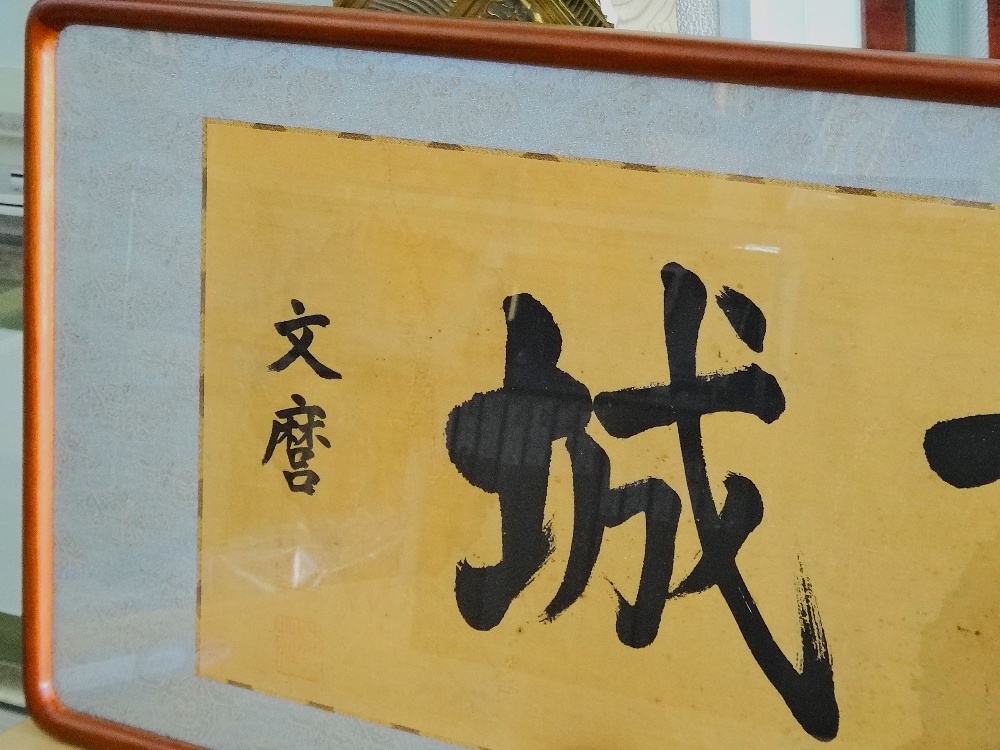 城
文麿